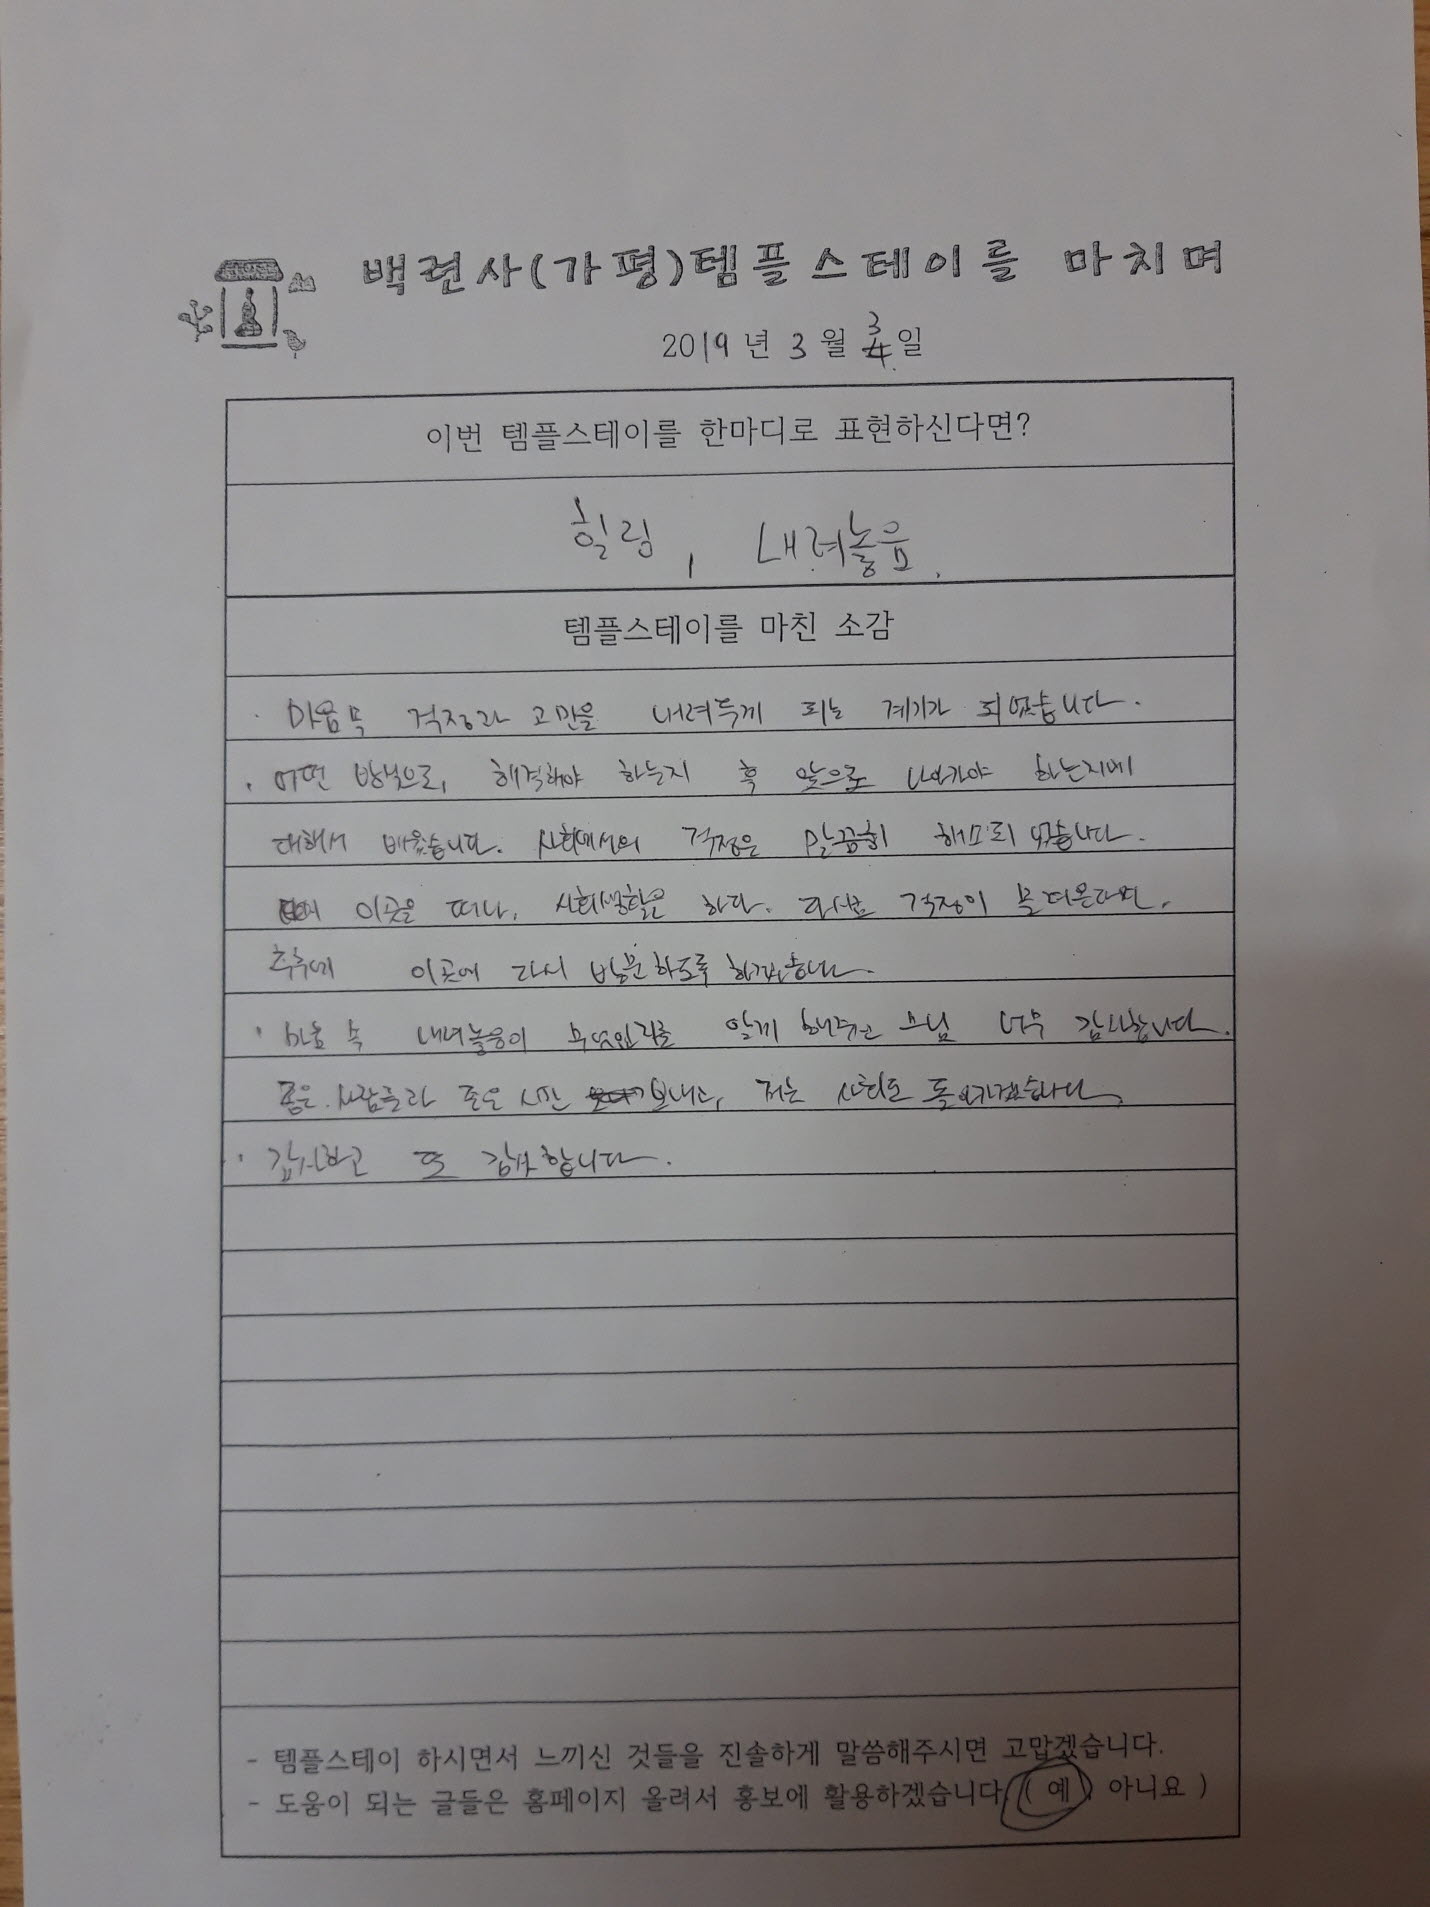 백련사(가평)템플스테이를 마치며
2019 년 3 월 3 일
이번 템플스테이를 한마디로 표현하신다면?
힐링, 내려놓음.
템플스테이를 마친 소감
· 마음속 걱정과 고민을 내려두게 되는 계기가 되었습니다.
· 어떤 방식으로, 해결해야 하는지 혹 앞으로 나아가야 하는지에
대해서 배웠습니다. 사회에서의 걱정은 말끔히 해소되었습니다.
이곳을 떠나, 사회생활을 하다. 다시금 걱정이 몰려온다면,
추후에 이곳에 다시 방문하도록 하겠습니다.
· 마음 속 내려놓음이 무엇인지를 알게 해주신 스님 너무 감사합니다.
좋은 사람들과 좋은 시간 보내고, 저는 사회로 돌아가겠습니다.
· 감사하고 또 감사합니다.
- 템플스테이 하시면서 느끼신 것들을 진솔하게 말씀해주시면 고맙겠습니다.
- 도움이 되는 글들은 홈페이지 올려서 홍보에 활용하겠습니다.( 예 , 아니요 )